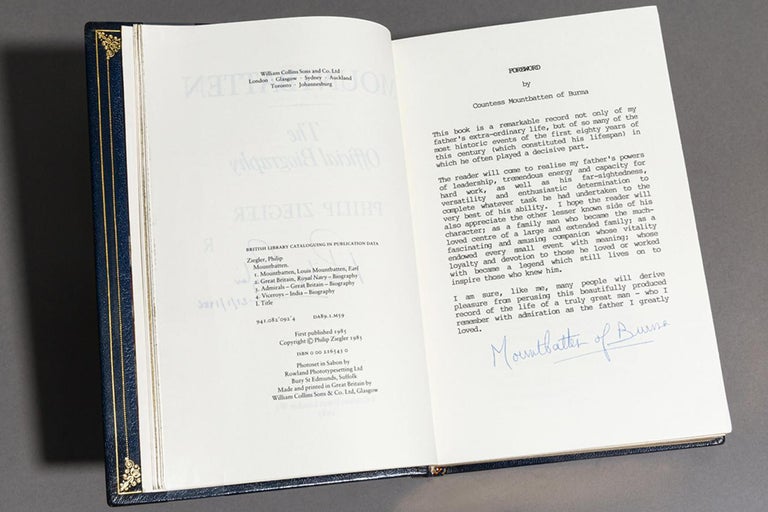 William Collins Sons and Co. Ltd
London · Glasgow · Sydney · Auckland
Toronto · Johannesburg
BRITISH LIBRARY CATALOGUING IN PUBLICATION DATA
Ziegler, Philip
Mountbatten.
1. Mountbatten, Louis Mountbatten, Earl
2. Great Britain, Royal Navy – Biography
3. Admirals – Great Britain – Biography
4. Viceroys – India – Biography
I. Title
941.082'092'4 DA89.1.M59
First published 1985
Copyright © Philip Ziegler 1985
ISBN 0 00 216543 0
Photoset in Sabon by
Rowland Phototypesetting Ltd
Bury St Edmunds, Suffolk
Made and printed in Great Britain by
William Collins Sons & Co. Ltd, Glasgow
FOREWORD
by
Countess Mountbatten of Burma
This book is a remarkable record not only of my
father's extra-ordinary life, but of so many of the
most historic events of the first eighty years of
this century (which constituted his lifespan) in
which he often played a decisive part.
The reader will come to realise my father's powers
of leadership, tremendous energy and capacity for
hard work, as well as his far-sightedness,
versatility and enthusiastic determination to
complete whatever task he had undertaken to the
very best of his ability. I hope the reader will
also appreciate the other lesser known side of his
character; as a family man who became the much-
loved centre of a large and extended family; as a
fascinating and amusing companion whose vitality
endowed every small event with meaning; whose
loyalty and devotion to those he loved or worked
with became a legend which still lives on to
inspire those who knew him.
I am sure, like me, many people will derive
pleasure from perusing this beautifully produced
record of the life of a truly great man - who I
remember with admiration as the father I greatly
loved.
Mountbatten of Burma